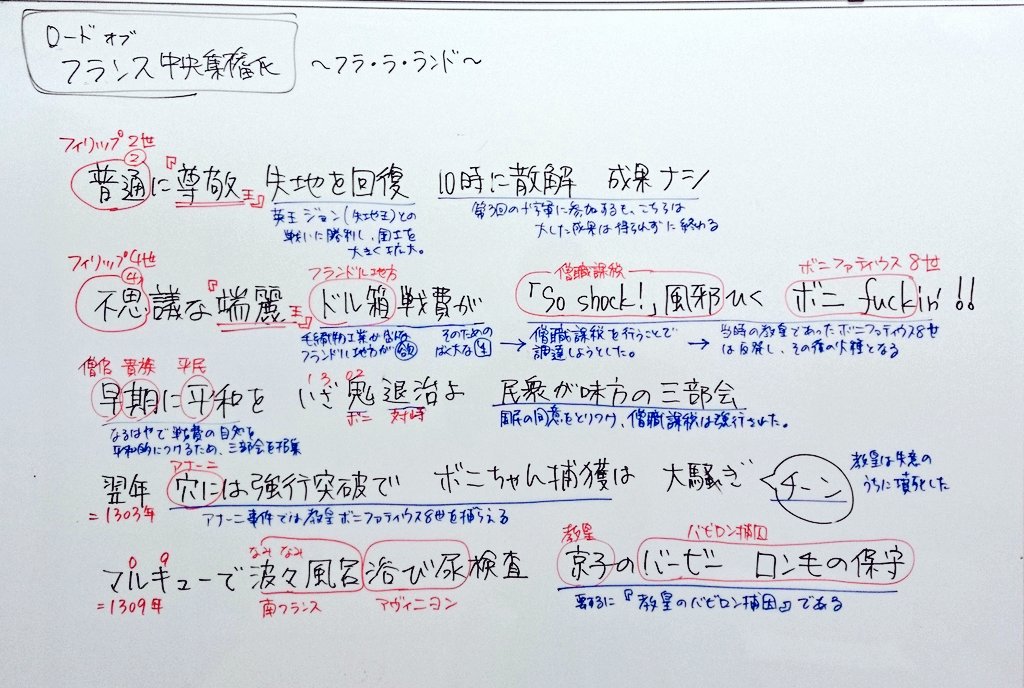 ロード オブ
フランス中央集権化 ～フラ・ラ・ランド～
フィリップ2世
②
普通に『尊敬王』 失地を回復 10時に散解 成果ナシ
英王ジョン(失地王)との
戦いに勝利し、国土を
大きく拡大。
第3回の十字軍に参加するも、こちらは
大した成果は得られずに終わる
フィリップ4世 フランドル地方 僧職課税 ボニファティウス8世
④
不思議な『端麗王』 ドル箱戦費が 「So shock!」風邪ひく ボニ fuckin'!!
毛織物工業が盛んな
フランドル地方が
そのための
ばく大な
→ 僧職課税を行うことで
調達しようとした。
→ 当時の教皇であったボニファティウス8世
は反発し、その後の火種となる
僧侶 貴族 平民 1 3 02
早期に平和を いざ鬼退治よ 民衆が味方の三部会
ボニ 対峙
なるはやで戦費の目処を
平和的につけるため、三部会を招集
国民の同意をとりつけ、僧職課税は強行された。
アナーニ
翌年 穴には強行突破で ボニちゃん捕獲は 大騒ぎ チーン
=1303年
アナーニ事件では教皇ボニファティウス8世を捕らえる
教皇は失意の
うちに憤死した
0 9 なみなみ 教皇 バビロン捕囚
マルキューで波々風呂浴び尿検査 京子のバービー ロン毛の保守
=1309年 南フランス アヴィニヨン
要するに『教皇のバビロン捕囚』である